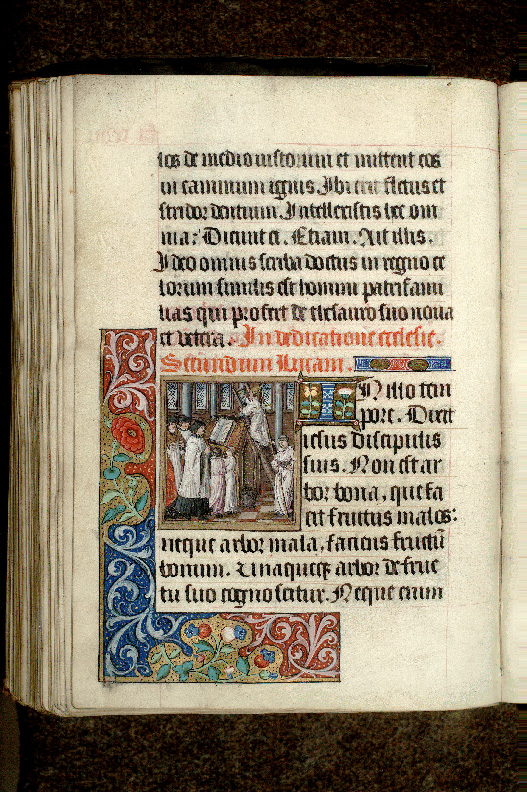 los de medio iustorum et mittent eos
in caminum ignis. Ibi erit fletus et
stridor dentium. Intellexistis hec om
nia? Dicunt ei. Etiam. Ait illis.
Ideo omnis scriba doctus in regno ce
lorum similis est homini patrifami
lias qui profert de thesauro suo noua
et vetera. In dedicatione ecclesie.
Secundum Lucam.
In illo tem
pore. Dixit
iesus discipulis
suis. Non est ar
bor bona, que fa
cit fructus malos:
neque arbor mala, faciens fructū
bonum. Vnaqueqȝ arbor de fruc
tu suo cognoscitur. Neque enim